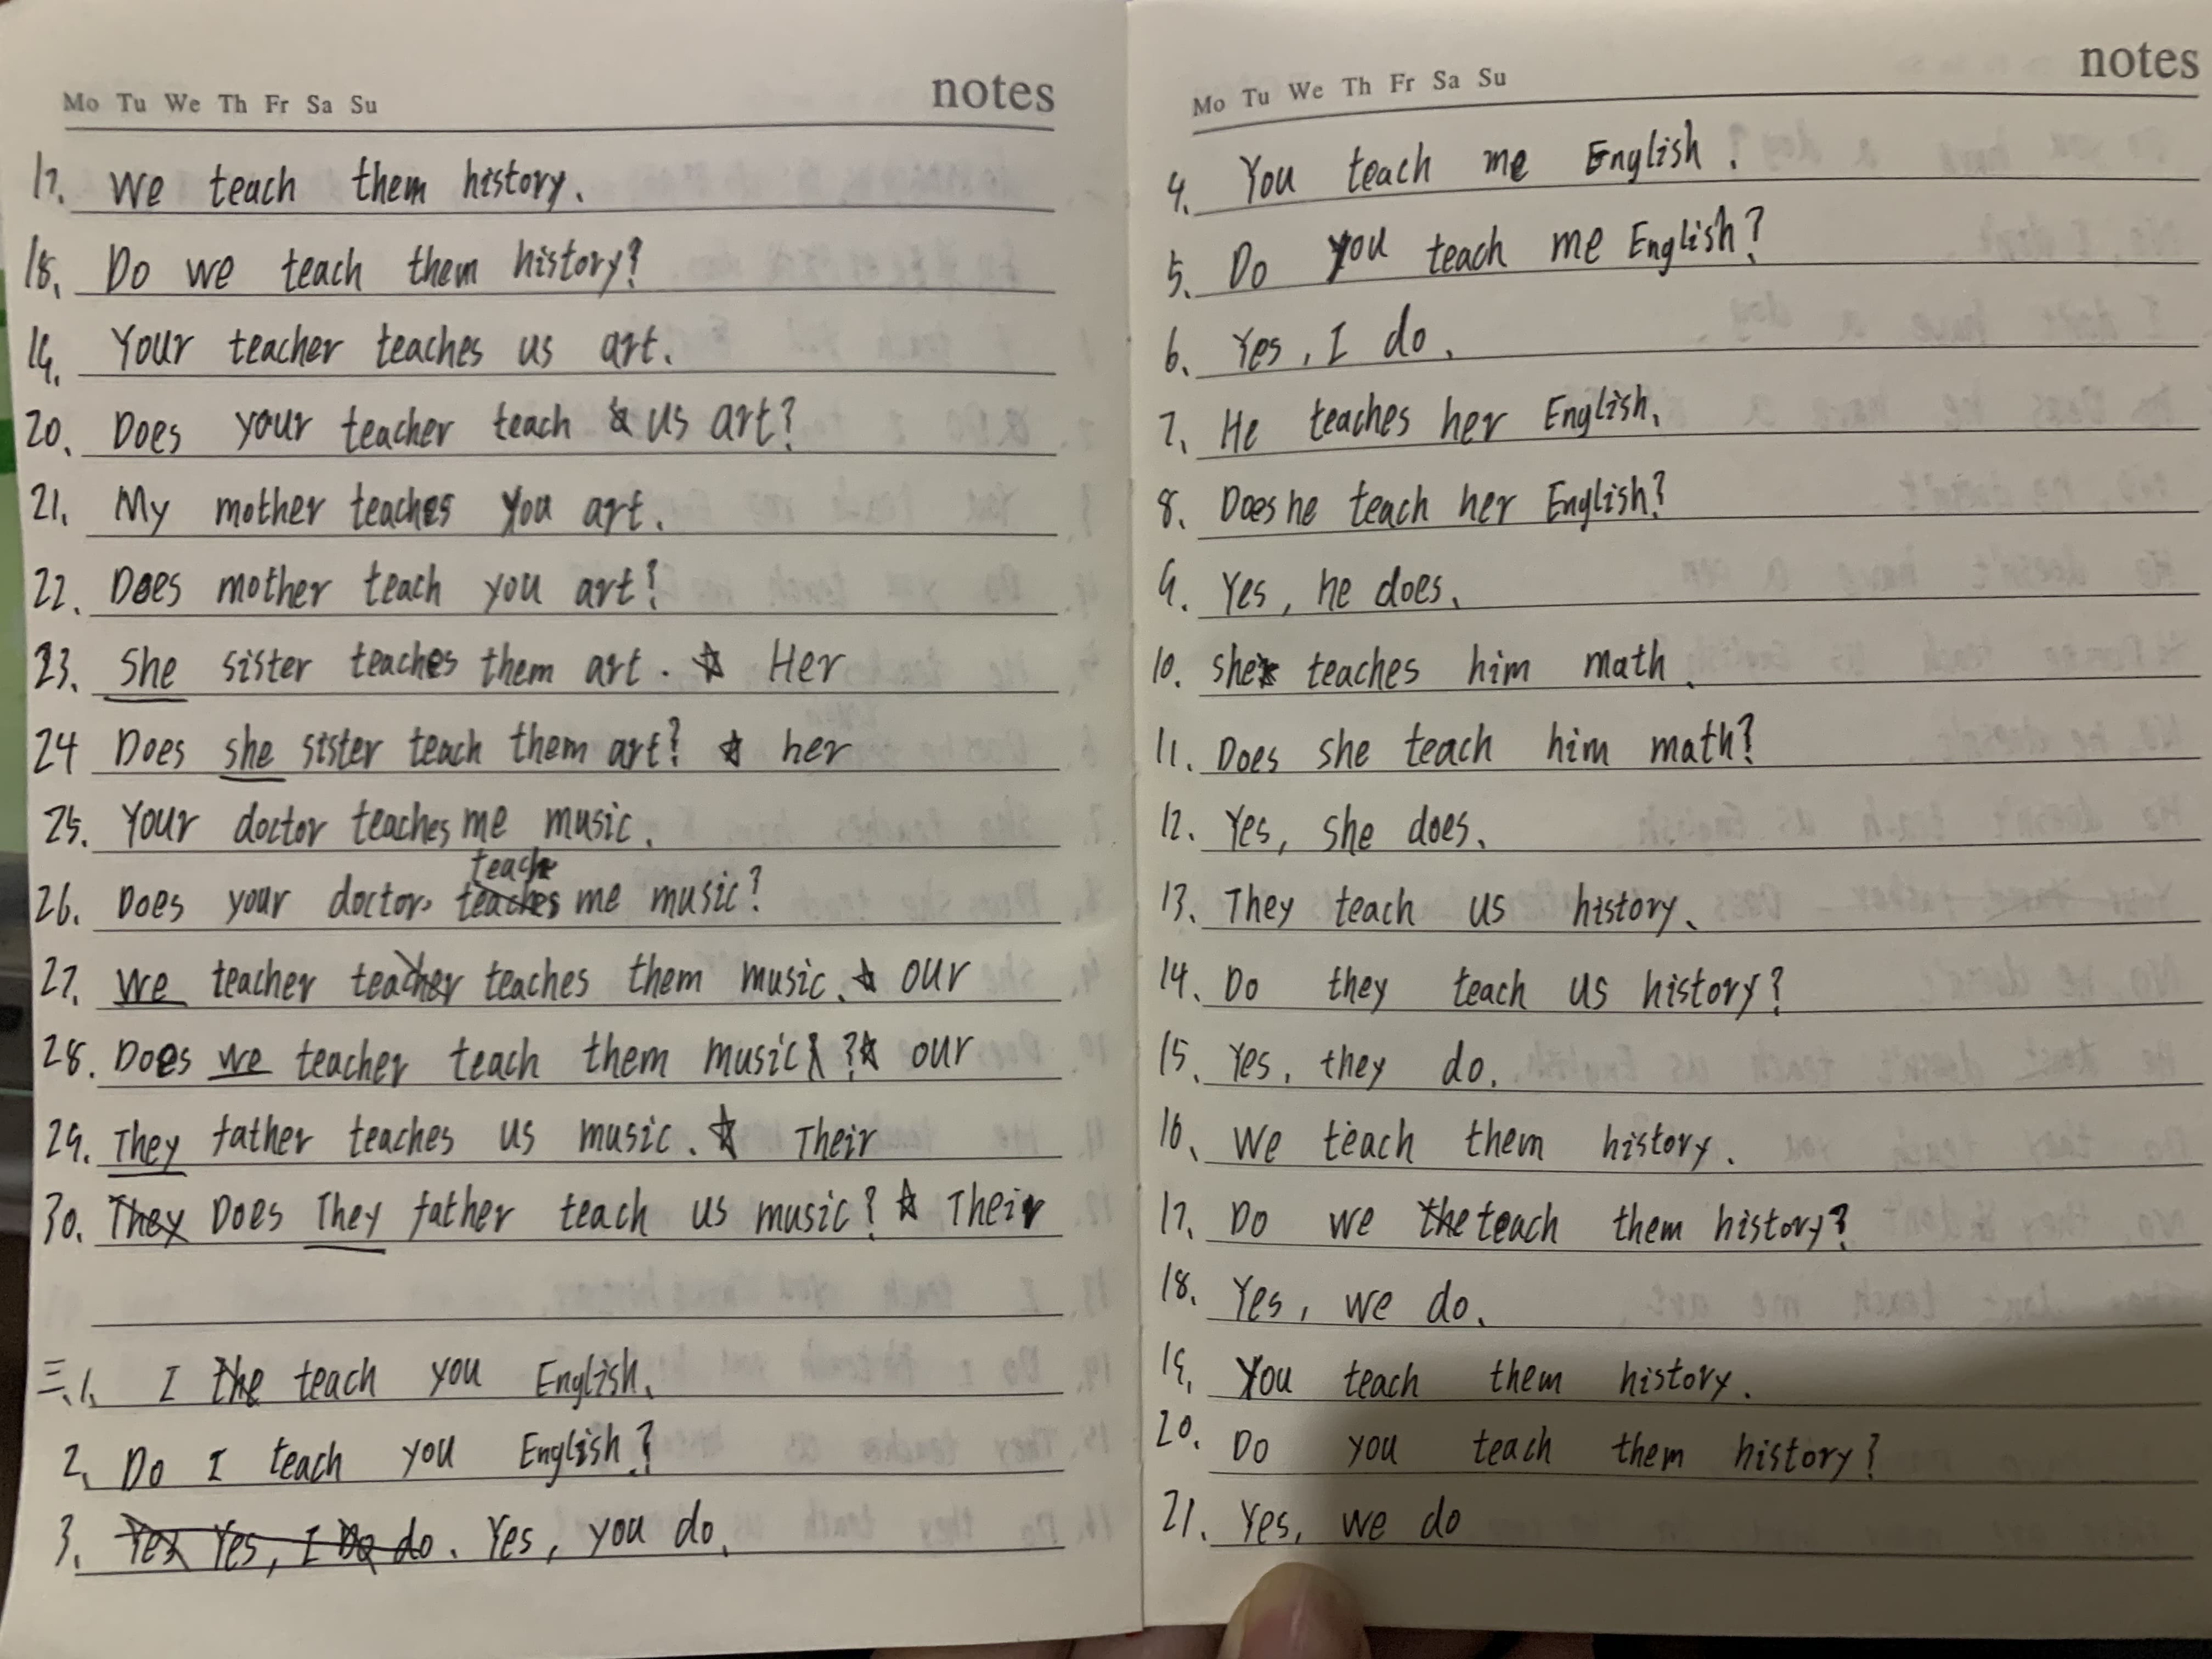 Mo Tu We Th Fr Sa Su notes
17. We teach them history.
18. Do we teach them history?
19. Your teacher teaches us art.
20. Does your teacher teach us art?
21. My mother teaches you art.
22. Does mother teach you art?
23. She sister teaches them art. ☆ Her
24 Does she sister teach them art? ☆ her
25. Your doctor teaches me music.
teach
26. Does your doctor teaches me music?
27. We teacher teacher teaches them music. ☆ our
28. Does we teacher teach them music? ☆ our
29. They father teaches us music. ☆ Their
30. They Does They father teach us music? ☆ Their
三.1. I the teach you English.
2. Do I teach you English?
3. Yes Yes, I Do do. Yes, you do.
Mo Tu We Th Fr Sa Su notes
4. You teach me English.
5. Do you teach me English?
6. Yes, I do.
7. He teaches her English.
8. Does he teach her English?
9. Yes, he does.
10. she teaches him math.
11. Does she teach him math?
12. Yes, she does.
13. They teach us history.
14. Do they teach us history?
15. Yes, they do.
16. We teach them history.
17. Do we the teach them history?
18. Yes, we do.
19. You teach them history.
20. Do you teach them history?
21. Yes, we do